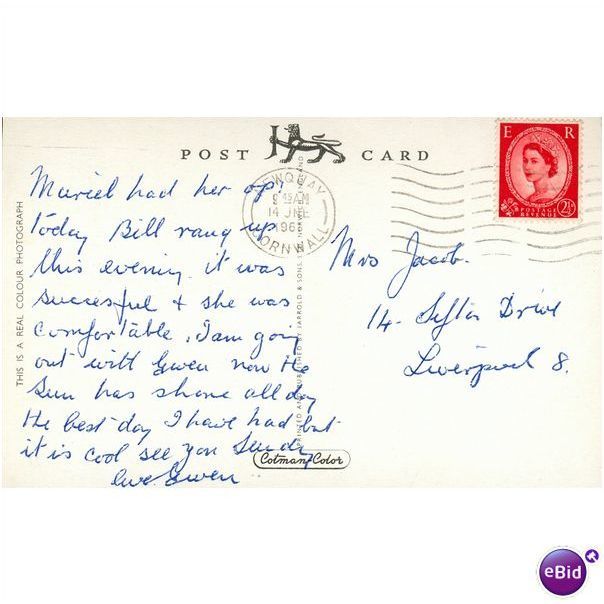 POST CARD
THIS IS A REAL COLOUR PHOTOGRAPH
Muriel had her op:
today Bill rang up
this evening it was
succesful & she was
comfortable. I am going
out with Gwen now the
Sun has shone all day
the best day I have had but
it is cool see you Sunday
love Gwen
PRINTED AND PUBLISHED BY JARROLD & SONS
Cotman-Color
NEWQUAY
9 45 AM
14 JNE
196
CORNWALL
E R
POSTAGE
REVENUE
2½
Mrs Jacob.
14 - Sefton Drive
Liverpool 8.
eBid